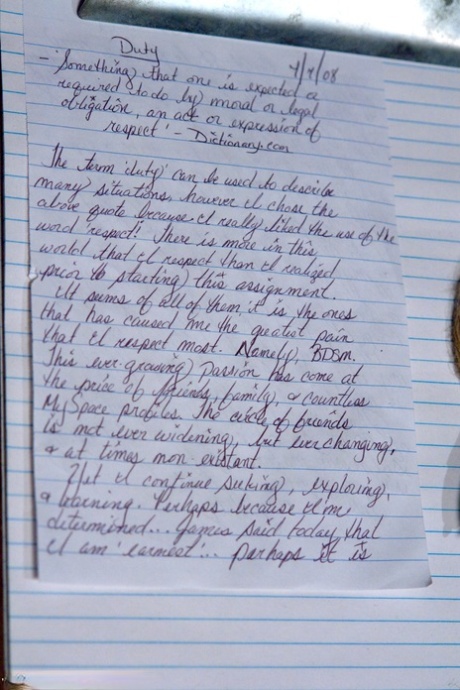 Duty
4/4/08
- 'Something that one is expected or
required to do by moral or legal
obligation, an act or expression of
respect' - Dictionary.com
The term 'duty' can be used to describe
many situations, however I chose the
above quote because I really liked the use of the
word 'respect'. There is more in this
world that I respect than I realized
prior to starting this assignment.
It sums of all of them, it is the ones
that has caused me the greatest pain
that I respect most. Namely, BDSM.
This ever-growing passion has come at
the price of friends, family, & countless
MySpace profiles. The circle of friends
is not ever widening, but ever changing,
& at times non-existant.
Yet I continue seeking, exploring,
& learning. Perhaps because I'm
determined... James said today that
I am 'earnest'... perhaps it is